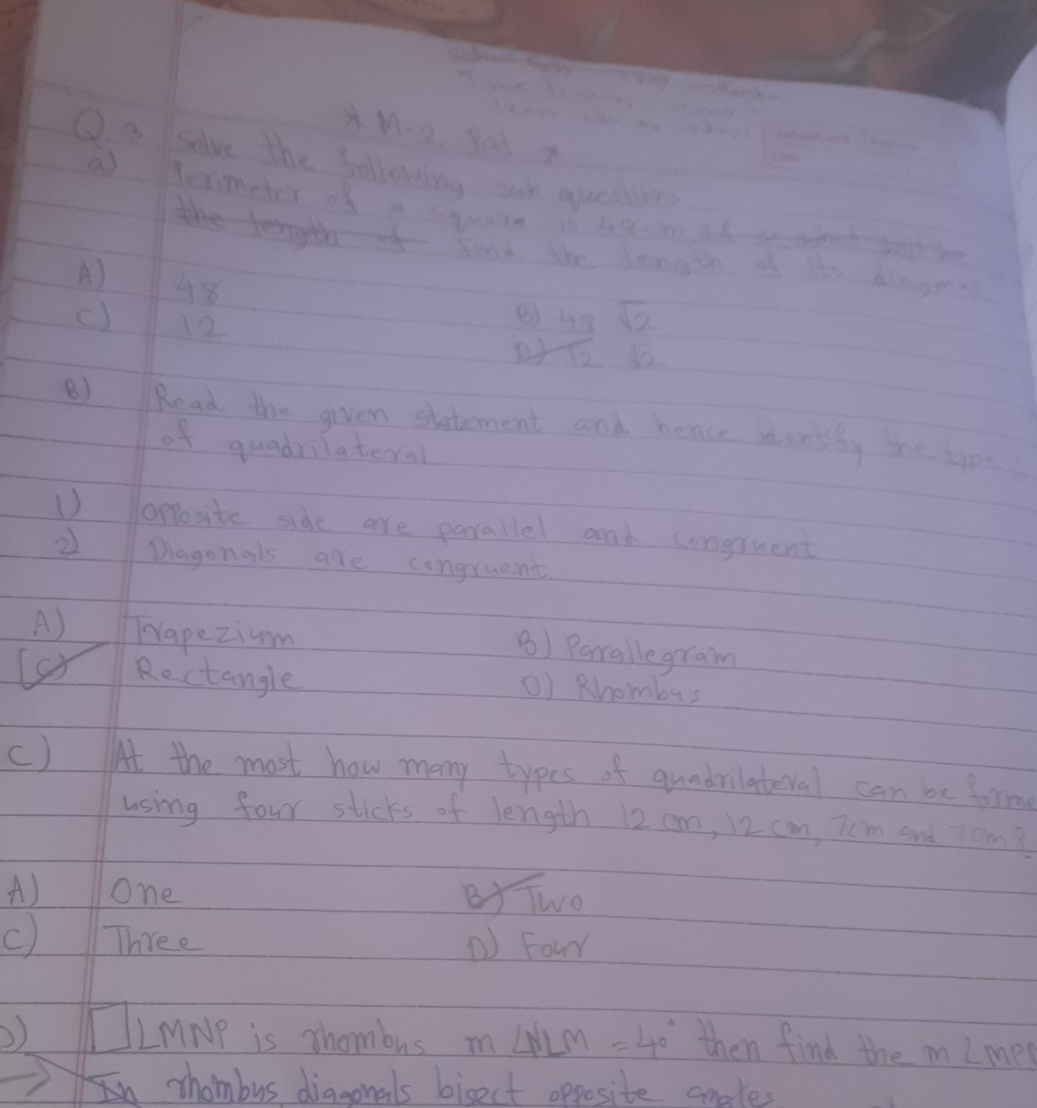 * M-2 Pat *
Q.2 Solve the following sub questions
a) Perimeter of a square is 48 m
the length of find the length of its
A) 48
B) 48 √2
C) 12
D) 12 √2
B) Read the given statement and hence identify the type
of quadrilateral
1) opposite side are parallel and congruent
2) Diagonals are congruent.
A) Trapezium B) Parallegram
C) Rectangle D) Rhombus
C) At the most how many types of quadrilateral can be forme
using four sticks of length 12 cm, 12 cm, 7cm and 7cm?
A) One B) Two
C) Three D) Four
D) □LMNP is rhombus m∠NLM = 40° then find the m∠MP
→ In rhombus diagonals bisect opposite angles